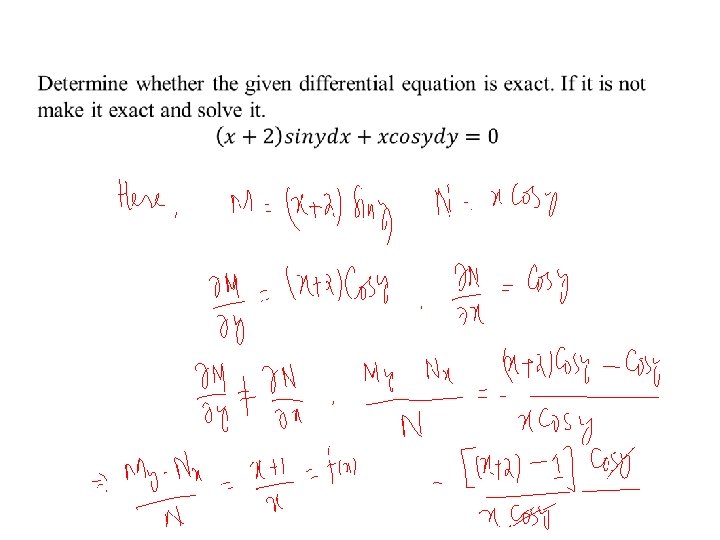 Determine whether the given differential equation is exact. If it is not
make it exact and solve it.
(x + 2)sinydx + xcosydy = 0
Here, M = (x+2) Siny N = x Cosy
∂M/∂y = (x+2) Cosy , ∂N/∂x = Cosy
∂M/∂y ≠ ∂N/∂x . My Nx / N = (x+2) Cosy - Cosy / x Cosy
⇒ My - Nx / N = x+1 / x = f(x) = [(x+2) - 1] Cosy / x Cosy